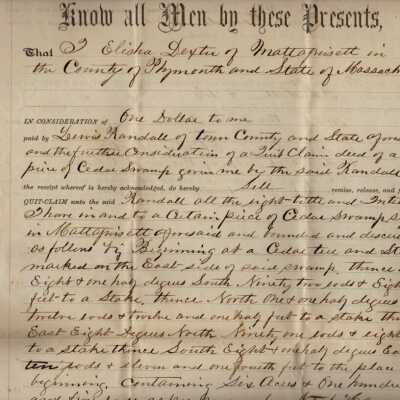 Know all Men by these Presents,
That I Elisha Dexter of Mattapoisett in
the County of Plymouth and State of Massach
IN CONSIDERATION of One Dollar to me
paid by Lewis Randall of town County and State afores
and the further Consideration of a Quit Claim deed of a
piece of Cedar Swamp given me by the said Randall
the receipt whereof is hereby acknowledged, do hereby Sell remise, release, and
QUIT-CLAIM unto the said Randall all the right title and Inte
I have in and to a Certain piece of Cedar Swamp s
in Mattapoisett aforesaid and bounded and descri
as follows viz Beginning at a Cedar tree and St
marked on the East side of said swamp, thence
Eight & one half degrees South Ninety two rods & Eight
feet to a Stake, thence North One & one half degrees
twelve rods & twelve and one half feet to a stake th
East Eight degrees North Ninety one rods & eight
to a stake thence South Eight & one half degrees Ea
ten rods & eleven and one fourth feet to the place
beginning. Containing Six Acres & One hundred